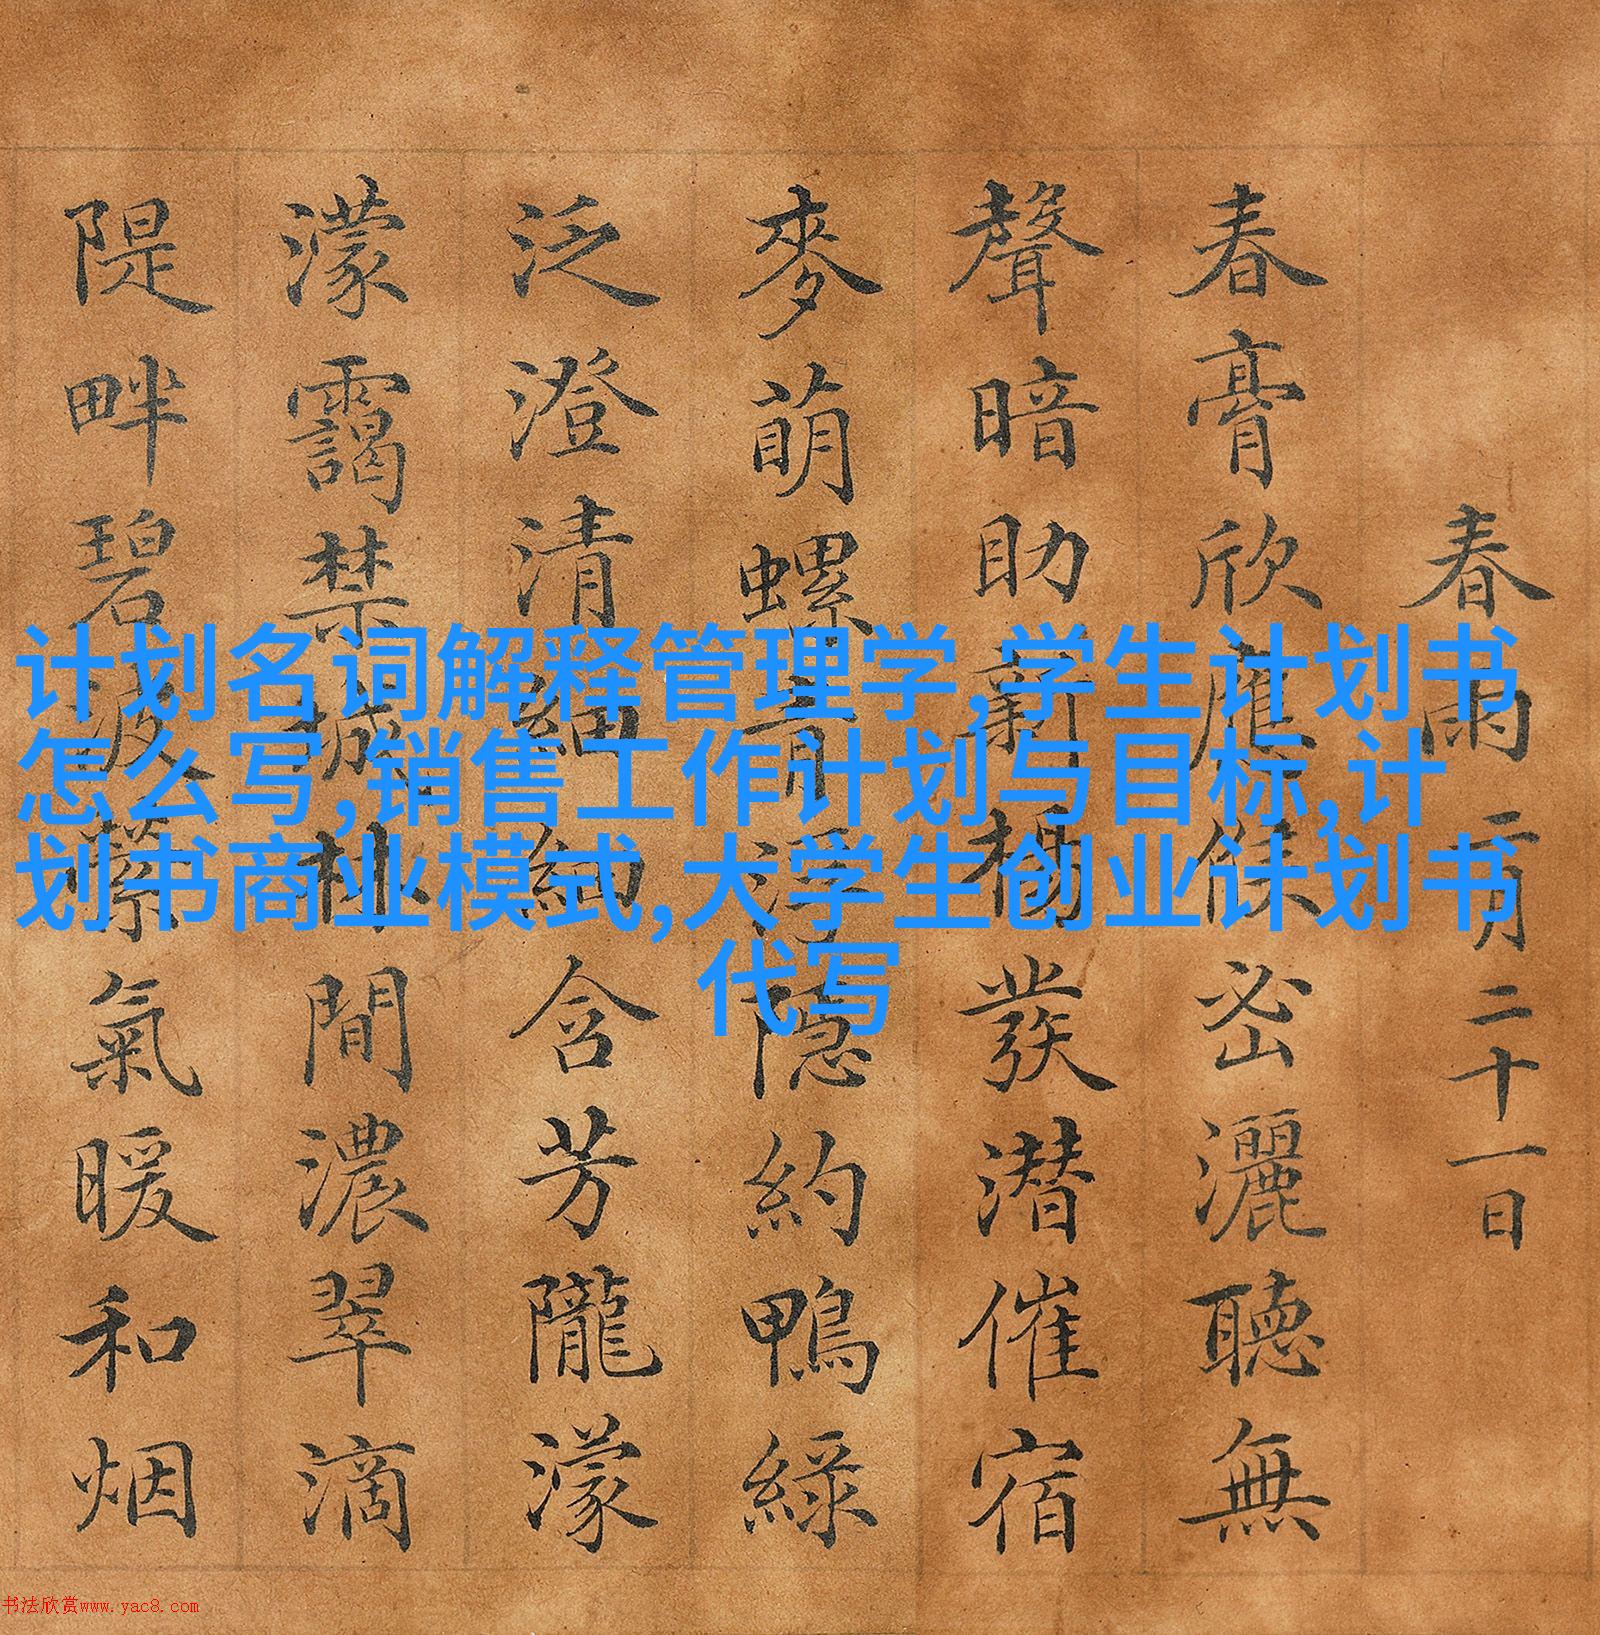 计划名词解释管理学,学生计划书
怎么写,销售工作计划与目标,计
划书商业模式,大学生创业计划书
代写
春雨二月二十一日
春膏欣應候密灑聽無
聲暗助新楊發潜催宿
麥萌螺青浮隐約鴨綠
泛澄清細細含芳隴濛
濛靄禁城林間濃翠滴
隄畔碧波縈氣暖和烟
书法欣赏www.yac8.com